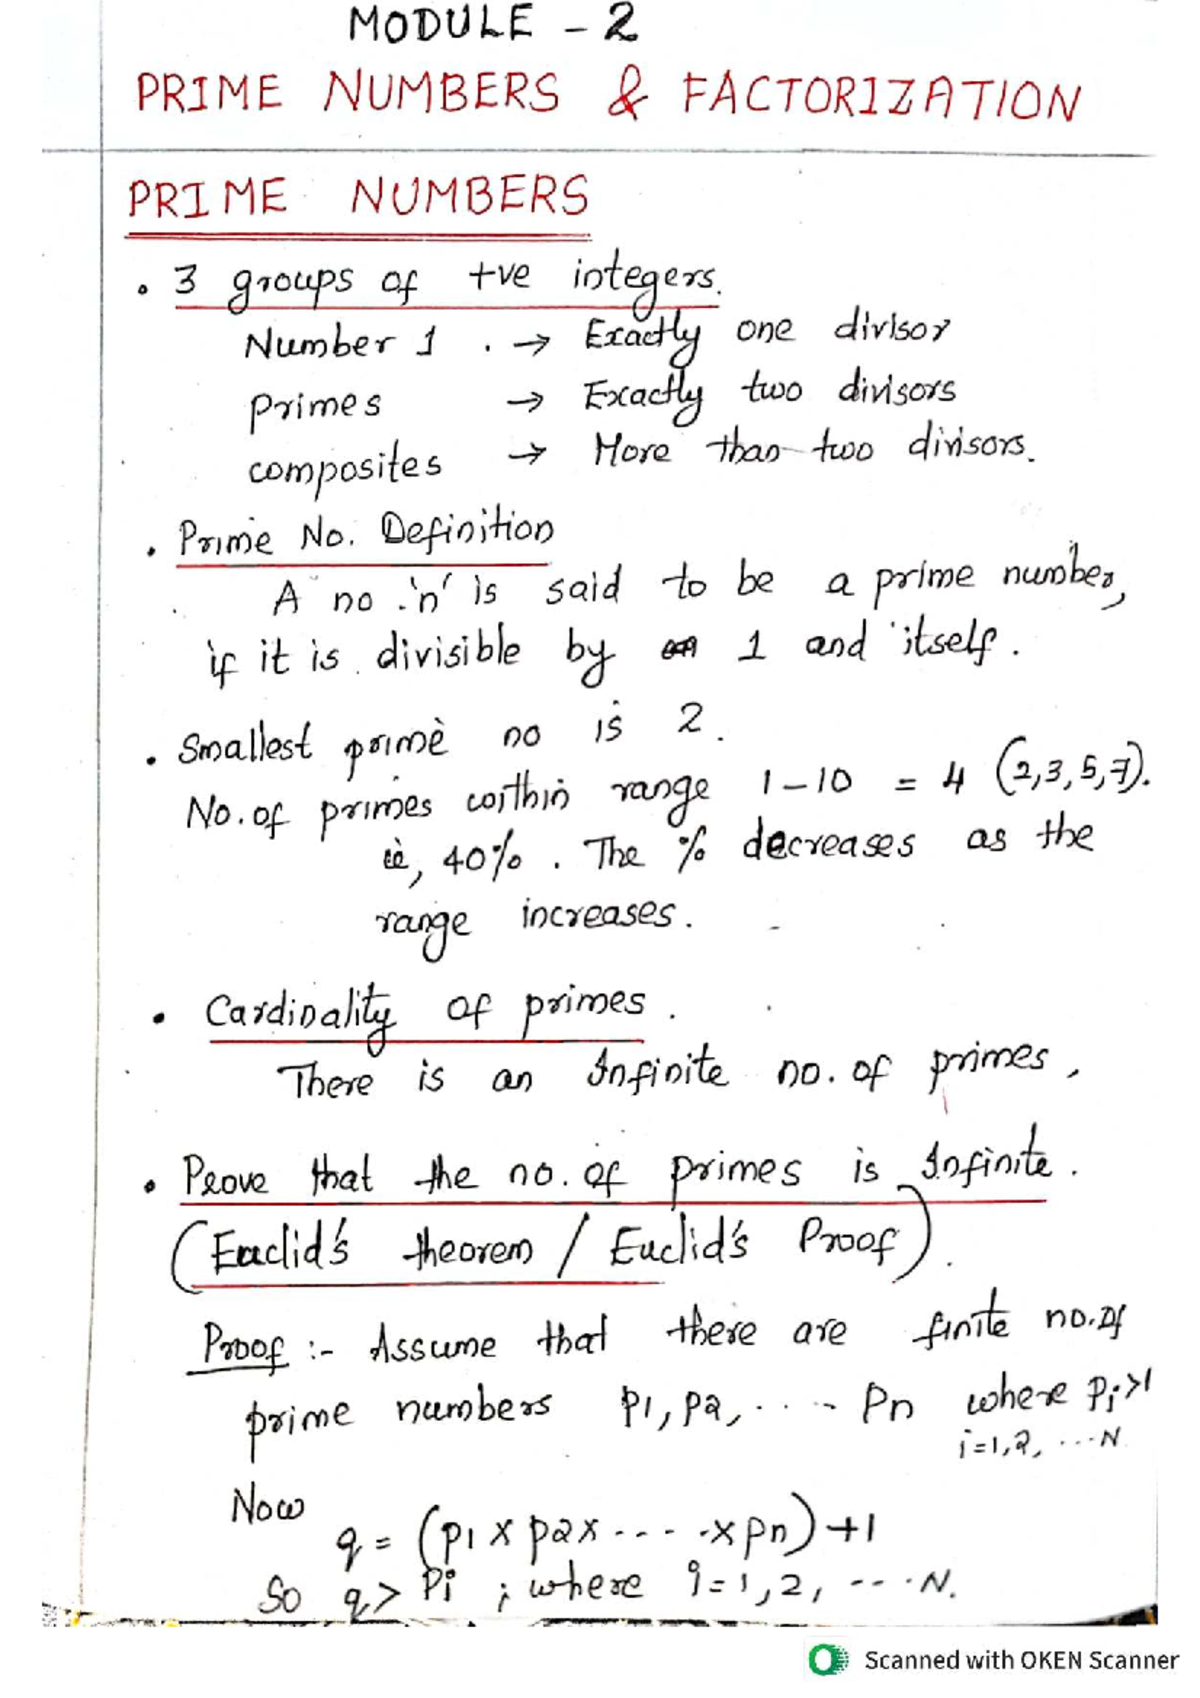 MODULE - 2
PRIME NUMBERS & FACTORIZATION
PRIME NUMBERS
• 3 groups of +ve integers.
Number 1 . → Exactly one divisor
Primes → Exactly two divisors
composites → More than two divisors.
• Prime No. Definition
A no. 'n' is said to be a prime number,
if it is divisible by 1 and itself.
• Smallest prime no is 2.
No. of primes within range 1-10 = 4 (2,3,5,7).
ie, 40%. The % decreases as the
range increases.
• Cardinality of primes.
There is an Infinite no. of primes.
• Prove that the no. of primes is Infinite.
(Euclid's theorem / Euclid's Proof).
Proof :- Assume that there are finite no. of
prime numbers P1, P2, .... Pn where Pi>1
i=1,2, ...N
Now
q = (P1 x P2 x .... x Pn)+1
So q > Pi ; where i=1,2, ---.N.
Scanned with OKEN Scanner